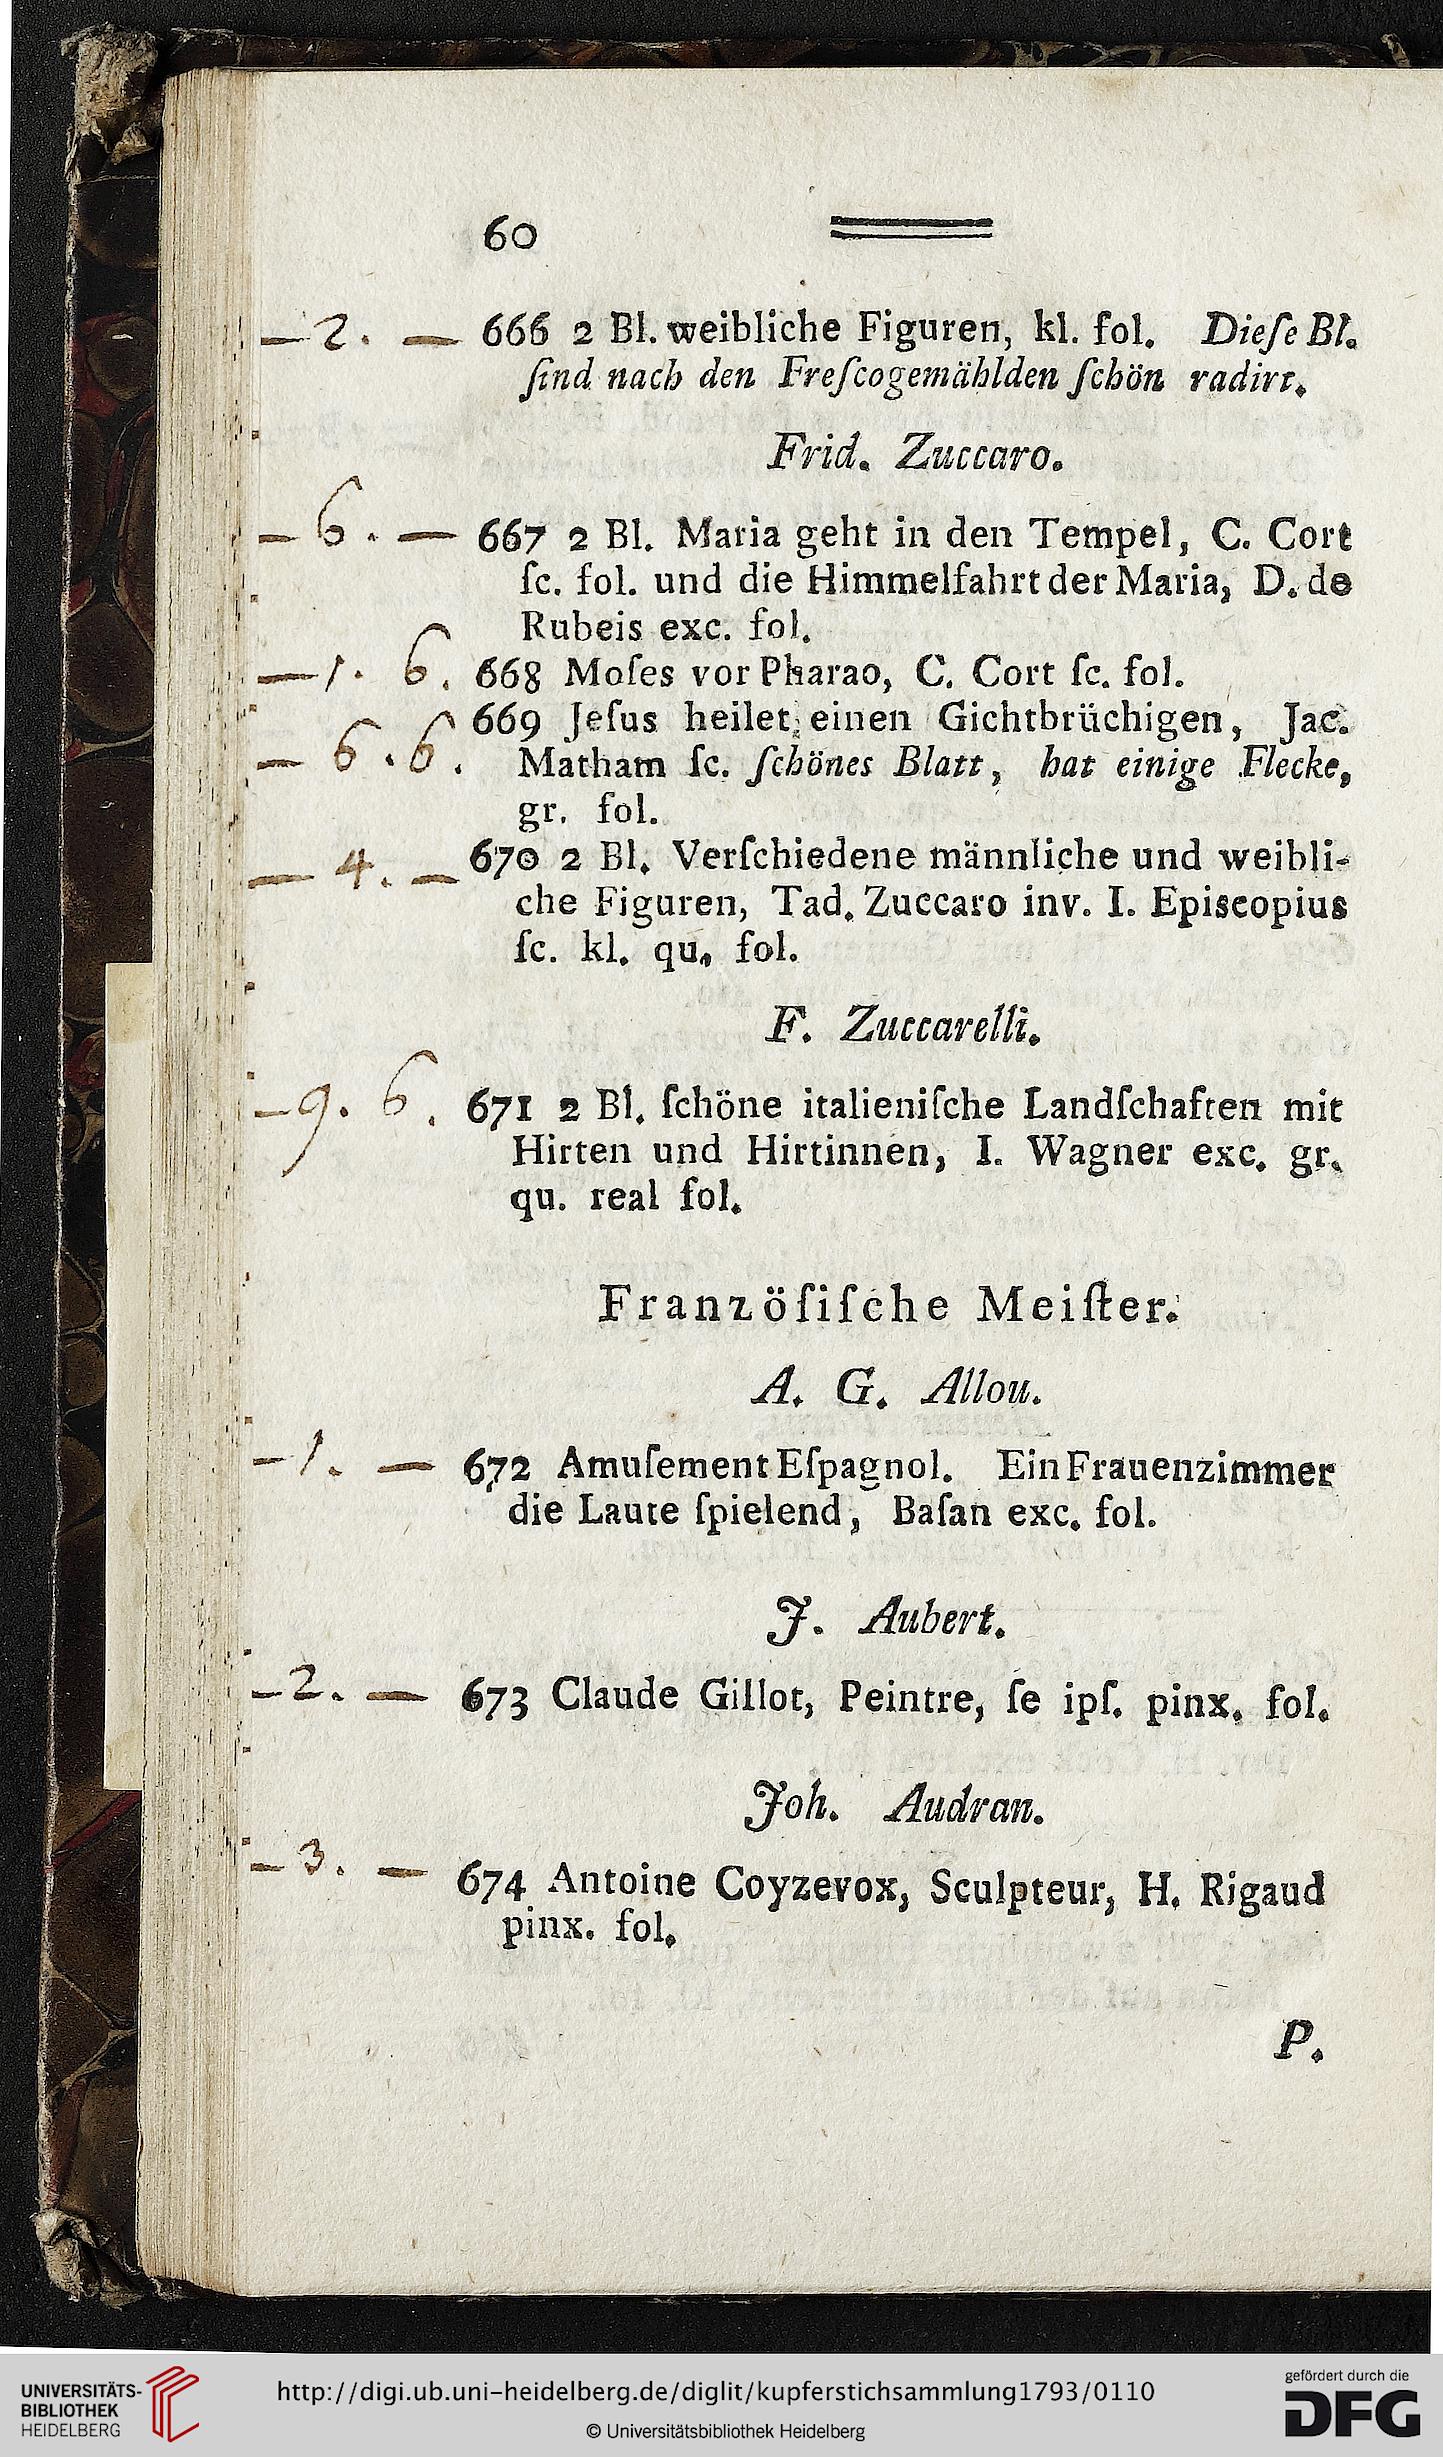 60
— 2. — 666 2 Bl. weibliche Figuren, kl. fol. Dieſe Bl.
ſind nach den Freſcogemählden ſchön radirt.
Frid. Zuccaro.
— 6. — 667 2 Bl. Maria geht in den Tempel, C. Cort
ſc. fol. und die Himmelfahrt der Maria, D. de
Rubeis exc. fol.
— 1. 6. 668 Moſes vor Pharao, C. Cort ſc. fol.
669 Jeſus heilet einen Gichtbrüchigen, Jac.
— 6. 6. Matham ſc. ſchönes Blatt, hat einige Flecke,
gr. fol.
— 4. — 670 2 Bl. Verſchiedene männliche und weibli-
che Figuren, Tad. Zuccaro inv. I. Episcopius
ſc. kl. qu. fol.
F. Zuccarelli.
— 9. 6. 671 2 Bl. ſchöne italieniſche Landſchaften mit
Hirten und Hirtinnen, I. Wagner exc. gr.
qu. real fol.
Franzöſiſche Meiſter.
A. G. Allou.
— 1. — 672 Amuſement Eſpagnol. Ein Frauenzimmer
die Laute ſpielend, Baſan exc. fol.
J. Aubert.
— 2. — 673 Claude Gillot, Peintre, ſe ipſ. pinx. fol.
Joh. Audran.
— 3. — 674 Antoine Coyzevox, Sculpteur, H. Rigaud
pinx. fol.
P.
UNIVERSITÄTS-
BIBLIOTHEK
HEIDELBERG
http://digi.ub.uni-heidelberg.de/diglit/kupferstichsammlung1793/0110
© Universitätsbibliothek Heidelberg
gefördert durch die
DFG